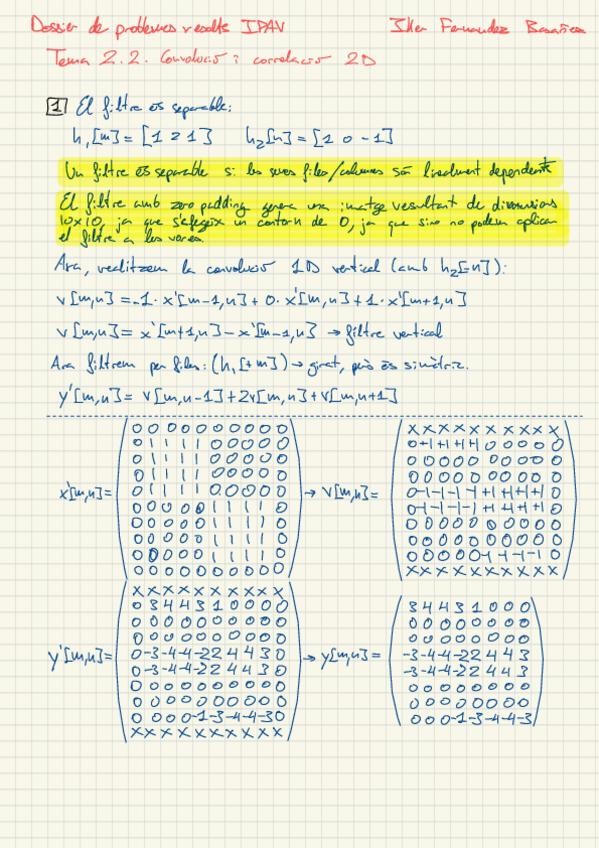 Dossier de problemes resolts IPAV Iker Fernandez
Tema 2.2. Convolució i correlació 2D
1 El filtre és separable:
h₁[m] = [1 2 1] h₂[n] = [1 0 -1]
Un filtre és separable si les seves files/columnes són linealment dependents
El filtre amb zero padding genera una imatge resultant de dimensions
10x10, ja que s'afegeix un contorn de 0, ja que sino no podem aplicar
el filtre a les vores.
Ara, realitzem la convolució 1D vertical (amb h₂[-n]):
v[m,n] = -1· x'[m-1,n] + 0· x'[m,n] + 1· x'[m+1,n]
v[m,n] = x'[m+1,n] - x'[m-1,n] → filtre vertical
Ara filtrem per files: (h₁[-m]) → girat, però és simètric.
y'[m,n] = v[m,n-1] + 2v[m,n] + v[m,n+1]
x'[m,n] =
0 0 0 0 0 0 0 0 0 0
0 1 1 1 1 0 0 0 0 0
0 1 1 1 1 0 0 0 0 0
0 1 1 1 1 0 0 0 0 0
0 1 1 1 1 0 0 0 0 0
0 0 0 0 0 1 1 1 1 0
0 0 0 0 0 1 1 1 1 0
0 0 0 0 0 1 1 1 1 0
0 0 0 0 0 1 1 1 1 0
0 0 0 0 0 0 0 0 0 0
→ v[m,n] =
x x x x x x x x x x
0 +1 +1 +1 +1 0 0 0 0 0
0 0 0 0 0 0 0 0 0 0
0 0 0 0 0 0 0 0 0 0
0 -1 -1 -1 -1 +1 +1 +1 +1 0
0 -1 -1 -1 -1 +1 +1 +1 +1 0
0 0 0 0 0 0 0 0 0 0
0 0 0 0 0 0 0 0 0 0
0 0 0 0 0 -1 -1 -1 -1 0
x x x x x x x x x x
y'[m,n] =
x x x x x x x x x x
0 3 4 4 3 1 0 0 0 0
0 0 0 0 0 0 0 0 0 0
0 0 0 0 0 0 0 0 0 0
0 -3 -4 -4 -2 2 4 4 3 0
0 -3 -4 -4 -2 2 4 4 3 0
0 0 0 0 0 0 0 0 0 0
0 0 0 0 0 0 0 0 0 0
0 0 0 0 -1 -3 -4 -4 -3 0
x x x x x x x x x x
→ y[m,n] =
3 4 4 3 1 0 0 0
0 0 0 0 0 0 0 0
0 0 0 0 0 0 0 0
-3 -4 -4 -2 2 4 4 3
-3 -4 -4 -2 2 4 4 3
0 0 0 0 0 0 0 0
0 0 0 0 0 0 0 0
0 0 0 -1 -3 -4 -4 -3